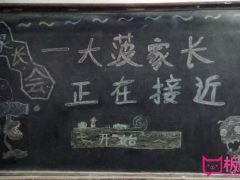 家长会
一大菠家长
正在接近
开始